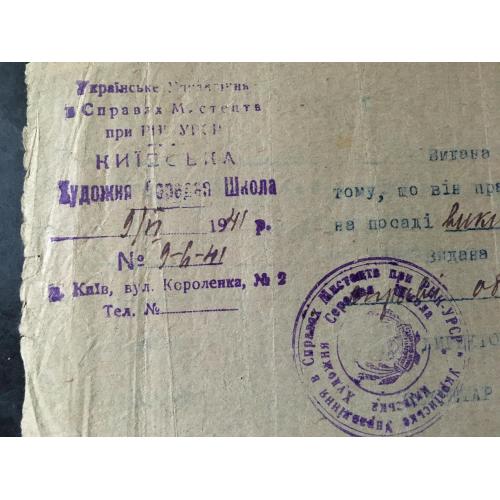 Українське Управління
в Справах Мистецтв
при РНК УРСР
КИЇВСЬКА
Художня Середня Школа
9/VI 1941 р.
№ 9-6-41
м. Київ, вул. Короленка, № 2
Тел. №
Видана
тому, що він пра
на посаді викл
Видана
Українське Управління в Справах Мистецтв при РНК-УРСР
Київська Художня Середня Школа